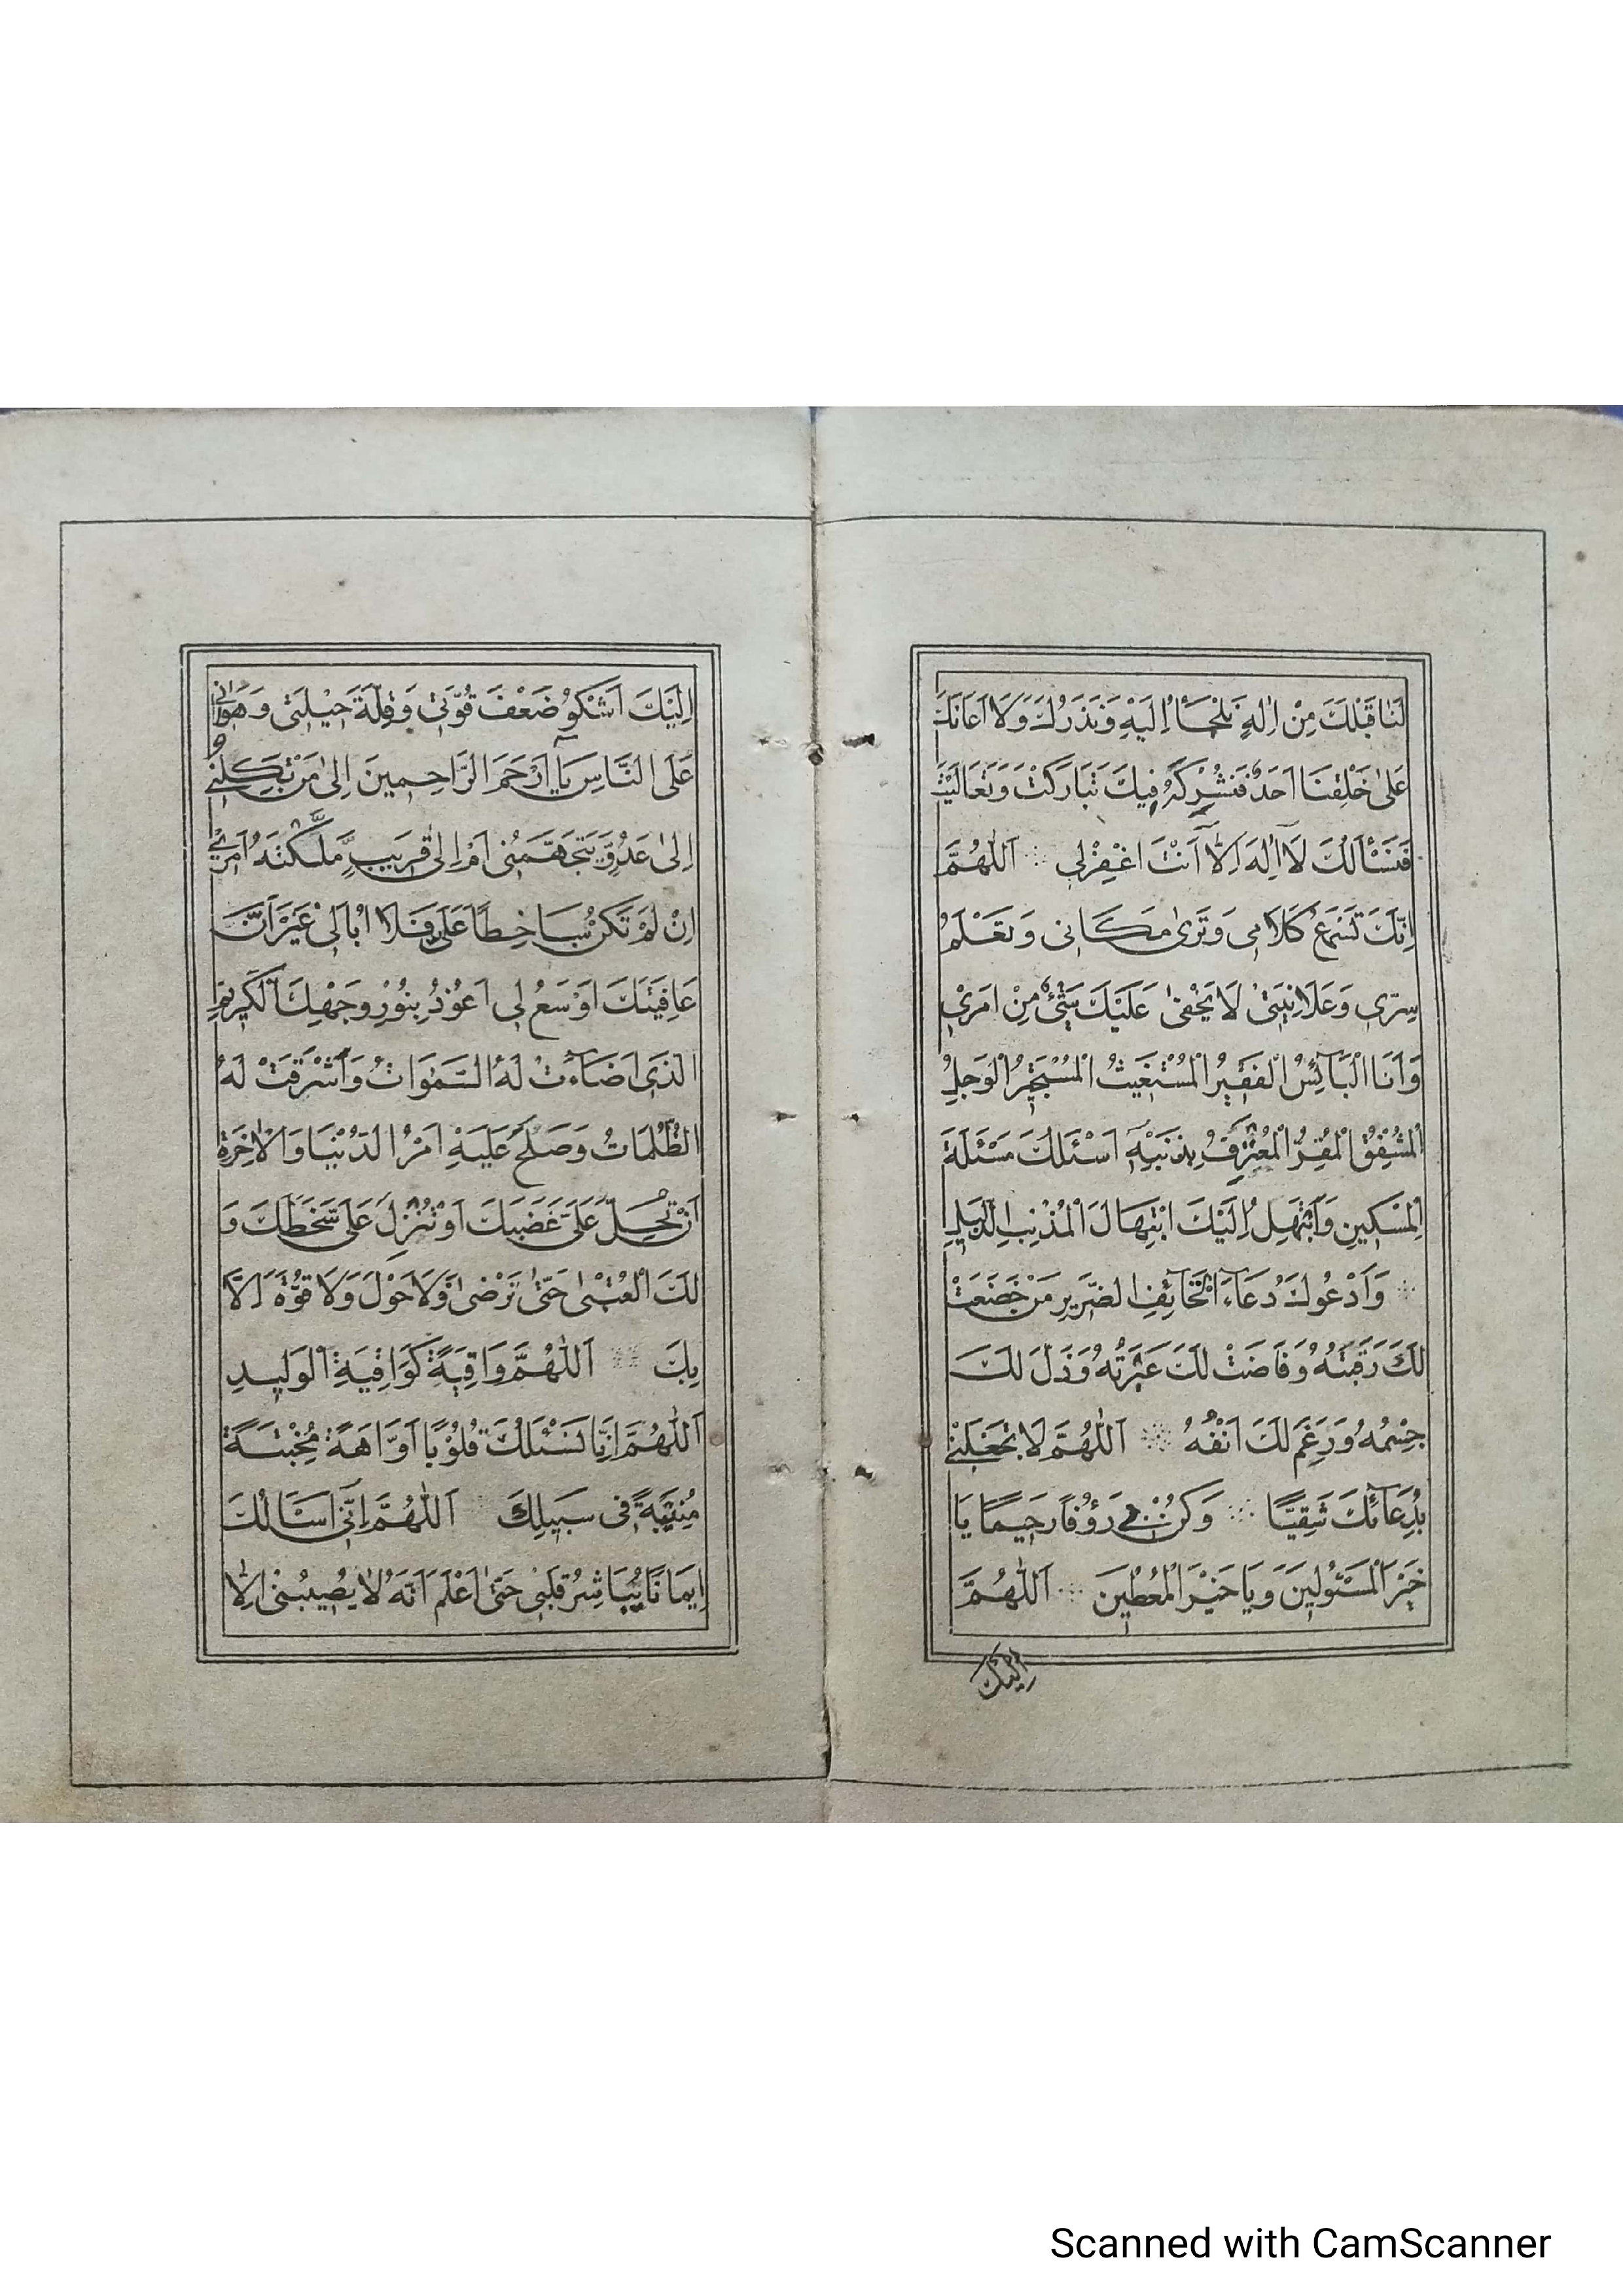 لَنَا قَبْلَكَ مِنْ اِلٰهٍ نَلْجَأُ اِلَيْهِ وَنَذَرُكَ وَلَا اَعَانَكَ
عَلٰى خَلْقِنَا اَحَدٌ فَنُشْرِكَهُ فِيكَ تَبَارَكْتَ وَتَعَالَيْتَ
فَنَسْأَلُكَ لَآ اِلٰهَ اِلَّآ اَنْتَ اغْفِرْلِى اَللّٰهُمَّ
اِنَّكَ تَسْمَعُ كَلَامِى وَتَرٰى مَكَانِى وَتَعْلَمُ
سِرِّى وَعَلَانِيَتِىْ لَا يَخْفٰى عَلَيْكَ شَيْئٌ مِنْ اَمْرِىْ
وَاَنَا الْبَآئِسُ الْفَقِيْرُ الْمُسْتَغِيْثُ الْمُسْتَجِيْرُ الْوَجِلُ
الْمُشْفِقُ الْمُقِرُّ الْمُعْتَرِفُ بِذَنْبِهٖ اَسْئَلُكَ مَسْئَلَةَ
الْمِسْكِينِ وَاَبْتَهِلُ اِلَيْكَ ابْتِهَالَ الْمُذْنِبِ الذَّلِيلِ
وَاَدْعُوكَ دُعَآءَ الْخَآئِفِ الضَّرِيرِ مَنْ خَضَعَتْ
لَكَ رَقَبَتُهُ وَفَاضَتْ لَكَ عَبْرَتُهُ وَذَلَّ لَكَ
جِسْمُهُ وَرَغِمَ لَكَ اَنْفُهُ اَللّٰهُمَّ لَا تَجْعَلْنِىْ
بِدُعَآئِكَ شَقِيًّا وَكُنْ بِىْ رَؤُفًا رَحِيمًا يَا
خَيْرَ الْمَسْئُولِيْنَ وَيَا خَيْرَ الْمُعْطِيْنَ اَللّٰهُمَّ
اِلَيْكَ
اِلَيْكَ اَشْكُوْ ضَعْفَ قُوَّتِىْ وَقِلَّةَ حِيْلَتِىْ وَهَوَانِىْ
عَلَى النَّاسِ يَآ اَرْحَمَ الرَّاحِمِينَ اِلٰى مَنْ تَكِلُنِىْ
اِلٰى عَدُوٍّ يَتَجَهَّمُنِى اَمْ اِلٰى قَرِيْبٍ مَّلَّكْتَهُ اَمْرِىْ
اِنْ لَمْ تَكُنْ سَاخِطًا عَلَىَّ فَلَا اُبَالِىْ غَيْرَ اَنَّ
عَافِيَتَكَ اَوْسَعُ لِى اَعُوْذُ بِنُوْرِ وَجْهِكَ الْكَرِيْمِ
الَّذِى اَضَآءَتْ لَهُ السَّمٰوَاتُ وَاَشْرَقَتْ لَهُ
الظُّلُمَاتُ وَصَلُحَ عَلَيْهِ اَمْرُ الدُّنْيَا وَالْاٰخِرَةِ
اَنْ تُحِلَّ عَلَىَّ غَضَبَكَ اَوْ تُنْزِلَ عَلَىَّ سَخَطَكَ وَ
لَكَ الْعُتْبٰى حَتّٰى تَرْضٰى وَلَا حَوْلَ وَلَا قُوَّةَ اِلَّا
بِكَ اَللّٰهُمَّ وَاقِيَةً كَوَاقِيَةِ الْوَلِيدِ
اَللّٰهُمَّ اِنَّا نَسْئَلُكَ قُلُوْبًا اَوَّاهَةً مُخْبِتَةً
مُنِيْبَةً فِى سَبِيْلِكَ اَللّٰهُمَّ اِنِّى اَسْاَلُكَ
اِيمَانًا يُبَاشِرُ قَلْبِىْ حَتّٰى اَعْلَمَ اَنَّهُ لَا يُصِيبُنِىْ اِلَّا
Scanned with CamScanner